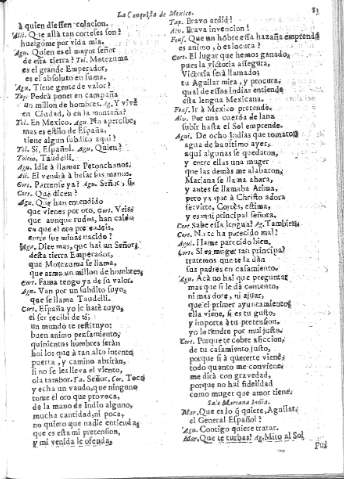 La Conquista de Mexico. 83
à quien diessen colacion.
Alli. Que allà tan corteses son?
huelgome por vida mia.
Agu. Quien es el mayor señor
de esta tierra? Tel. Motezuma
es el grande Emperador,
es el absoluto en suma.
Agu. Tiene gente de valor?
Tap. Podrà poner en campaña
un millon de hombres. Ag. Y vive
en Ciudad, ò en la montaña?
Tel. En Mexico. Agu. No aperciue,
mas es estilo de España,
tiene algun subdito aqui?
Tel. Si, Español. Agu. Quien?
Taudelli.
Agu. Idle à llamar
All. El vendrà à besar las manos.
Cort. Partente ya? Agu. Señor, si.
Cor. Que dicen?
Agu. Que han entendido
que vienes por oro. Cort.
que aunque rudos, han caido
en que el oro
entre los
Agu. Dize mas, que hai un Señor
desta tierra Emperador,
que Motezuma se llama,
que arma un millon de hombres
Cort. Fama tengo ya de su valor.
Agu. Van por un subdito suyo
que se llama Taudelli.
Cort. España yo le harè tuyo,
el ser recibi de ti:
un mundo te restituyo:
buen animo pensamiento,
quinientos hombres seràn
hoi los que à tan alto intento
puerta, y camino abriràn,
si no se les lleva el viento,
ola tambor. Ta. Señor, Cor. Toca
y echa un vando, que ninguno
tome el oro que provoca,
de la mano de Indio alguno,
mucha cantidad, ni poca,
no quiero que nadie entienda,
que es esta mi pretension,
y mi venida le ofenda,
Tap. Bravo ardid!
Alv. Brava invencion!
Que un hōbre esta hazaña emprenda
es animo, ò es locura?
Cort. El lugar que hemos ganado,
pues la victoria assegura,
Victoria serà llamado;
tu Aguilar mira, y procura,
qual de essas Indias entiende
esta lengua Mexicana.
Ir à Mexico pretende.
Alv. Por una cuerda de lana
subir hasta el Sol emprende.
Agui. De ocho Indias que tomaron
agua de bautismo ayer,
aqui algunas se quedaron,
y entre ellas una muger
que las demàs alabaron,
Mariana se llama ahora,
y antes se llamaba
pero ya que à Christo adora
te sirve, Cortès, estima,
y es mui principal señora.
Cort. Sabe essa lengua? Ag. Tambien.
Cor. No te ha parecido mal?
Agui. Hame parecido bien.
Cort. Si es muger tan principal
tratemos que te la dàn
sus padres en casamiento.
Agu. Acà no hai que preguntar
mas que si le dà contento,
ni mas dote, ni ajuar,
que el primer ayuntamiento,
ella viene, si es tu gusto,
y importa à tu pretension,
yo la tendrè por mui justo.
Cort. Porque te cobre aficion,
de tu casamiento justo,
porque si à quererte viene,
todo quanto me conviene
me dirà con gravedad,
porque no hai fidelidad
como muger que amor tiene.
Sale Mariana India.
Mar. Que es lo q̃ quiere, Aguilar,
el General Español?
Agu. Contigo quiere tratar.
Mar. Que te turbas? Ag. Miro al Sol,